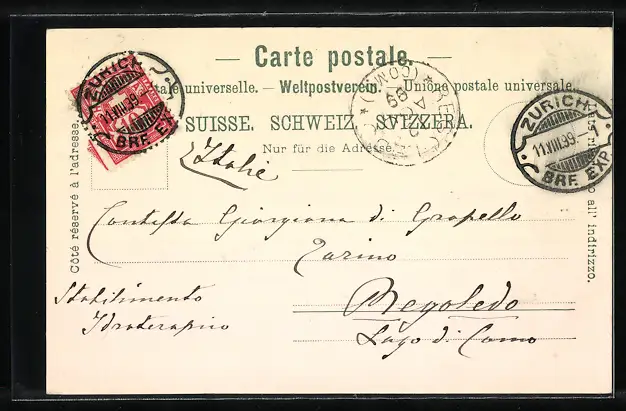 Carte postale.
Union postale universelle. — Weltpostverein. — Unione postale universale.
SUISSE. SCHWEIZ. SVIZZERA.
Nur für die Adresse.
Côté réservé à l'adresse.
all' indirizzo.
ZÜRICH
11.VIII.99.
BRF. EXP.
ZÜRICH
11.VIII.99.–
BRF. EXP.
10
(COMO)
99
Italie
Contessa Giorgiana di Gropello
Tarino
Stabilimento
Idroterapico
Regoledo
Lago di Como